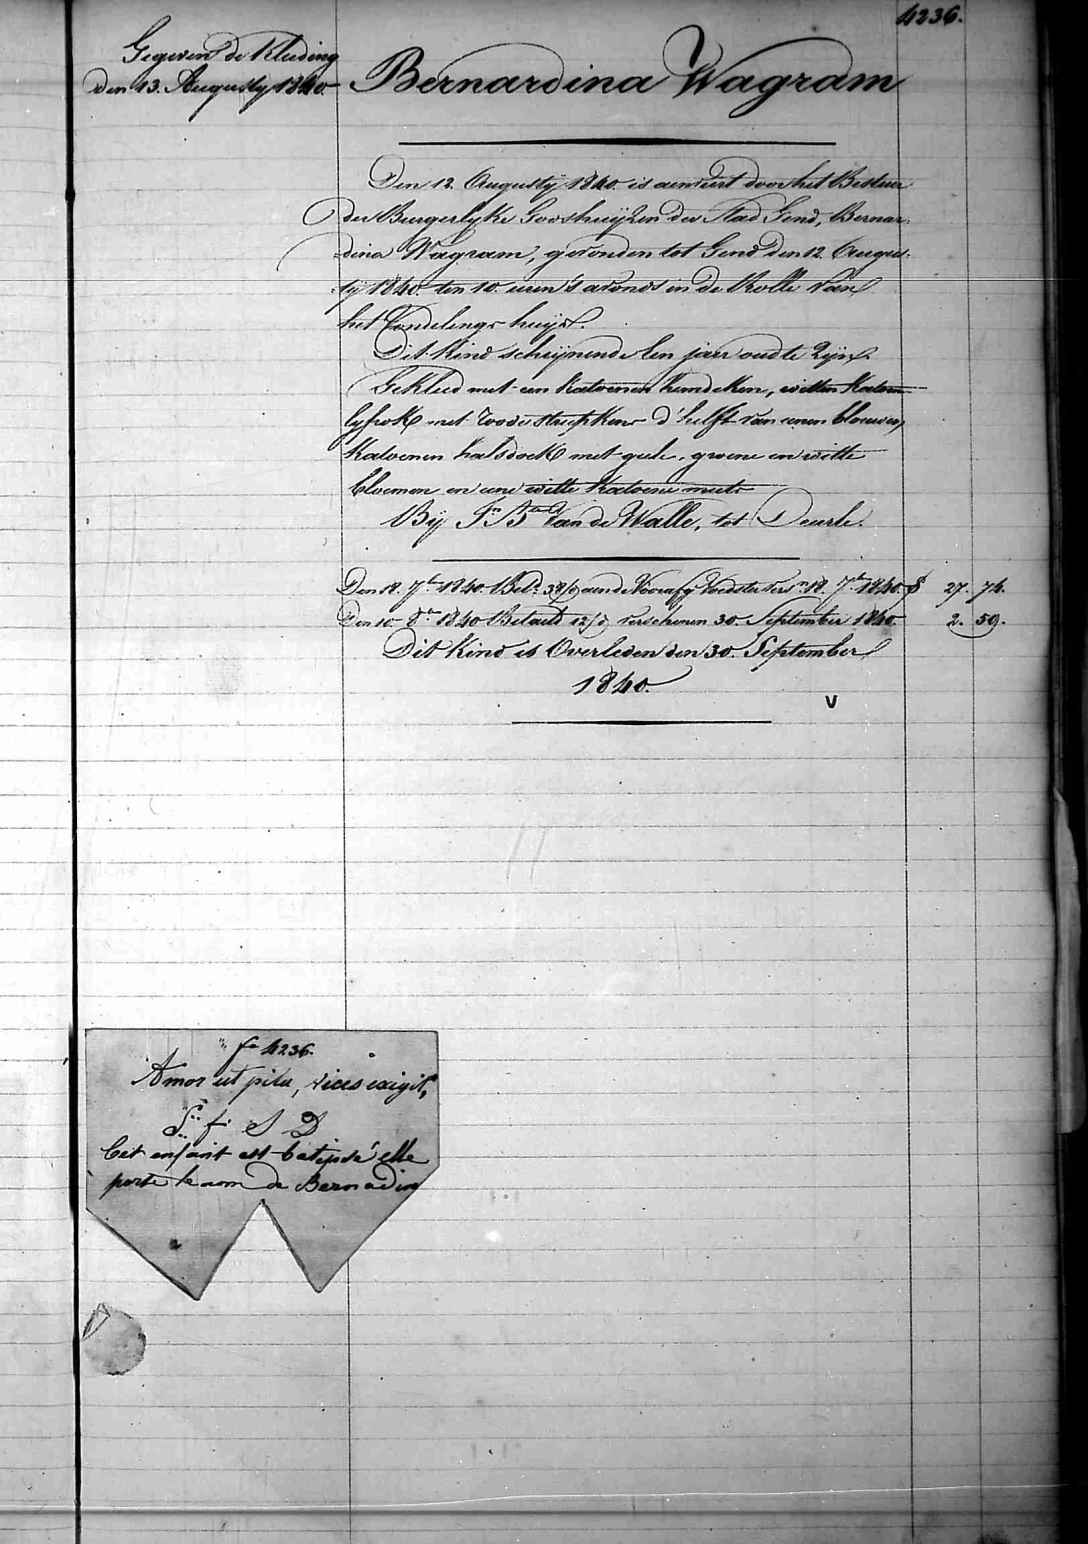 4236.
Gegeven de Kleeding
den 13. Augusty 1840.
Bernardina Wagram
Den 12. Augusty 1840. is aenveert door het Bestuer
der Burgerlyke Godshuyzen der Stad Gend, Bernar-
dina Wagram, gevonden tot Gend den 12. Augus-
ty 1840. ten 10. uren 's avonds in de Rolle van
het Vondelings huys.
Dit kind schynende een jaer oud te zyn.
Gekleed met een katoenen hemdeken, witten katoen
lyfrok met roode striepkens d'helft van eenen blauwen
katoenen halsdoek met gele, groene en witte
bloemen en eene witte katoene muts
By Van de Walle, tot Deurle.
Den 18. 7bre 1840. Bet. 38/ aen de Voedster vers. 18. 7bre 1840. 27. 74.
Den 10. 8bre 1840 Betaeld 12/ verschenen 30. September 1840 2. 59.
Dit kind is Overleden den 30. September
1840.
V
fo 4236.
Amor ut pila, vices exigit,
S. f. S D
Cet enfant est batisé elle
porte le nom de Bernadin